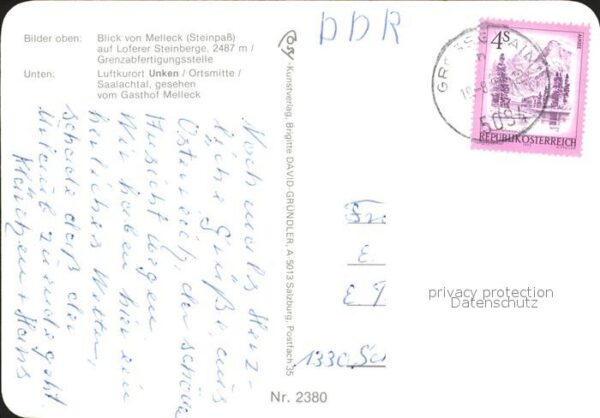 Bilder oben: Blick von Melleck (Steinpaß)
auf Loferer Steinberge, 2487 m /
Grenzabfertigungsstelle
Unten: Luftkurort Unken / Ortsmitte /
Saalachtal, gesehen
vom Gasthof Melleck
Cosy-Kunstverlag, Brigitte DAVID-GRÜNDLER, A-5013 Salzburg, Postfach 35
Nr. 2380
DDR
4S
REPUBLIK ÖSTERREICH
5084
Nochmals Herz-
liche Grüße aus
Österreich, der schönen
Aussicht wegen.
Wir haben hier ein
herrliches Wetter,
schade daß der
Urlaub zu ende geht.
Klärchen + Hans
Fr
E
E
1330 Sc
privacy protection
Datenschutz